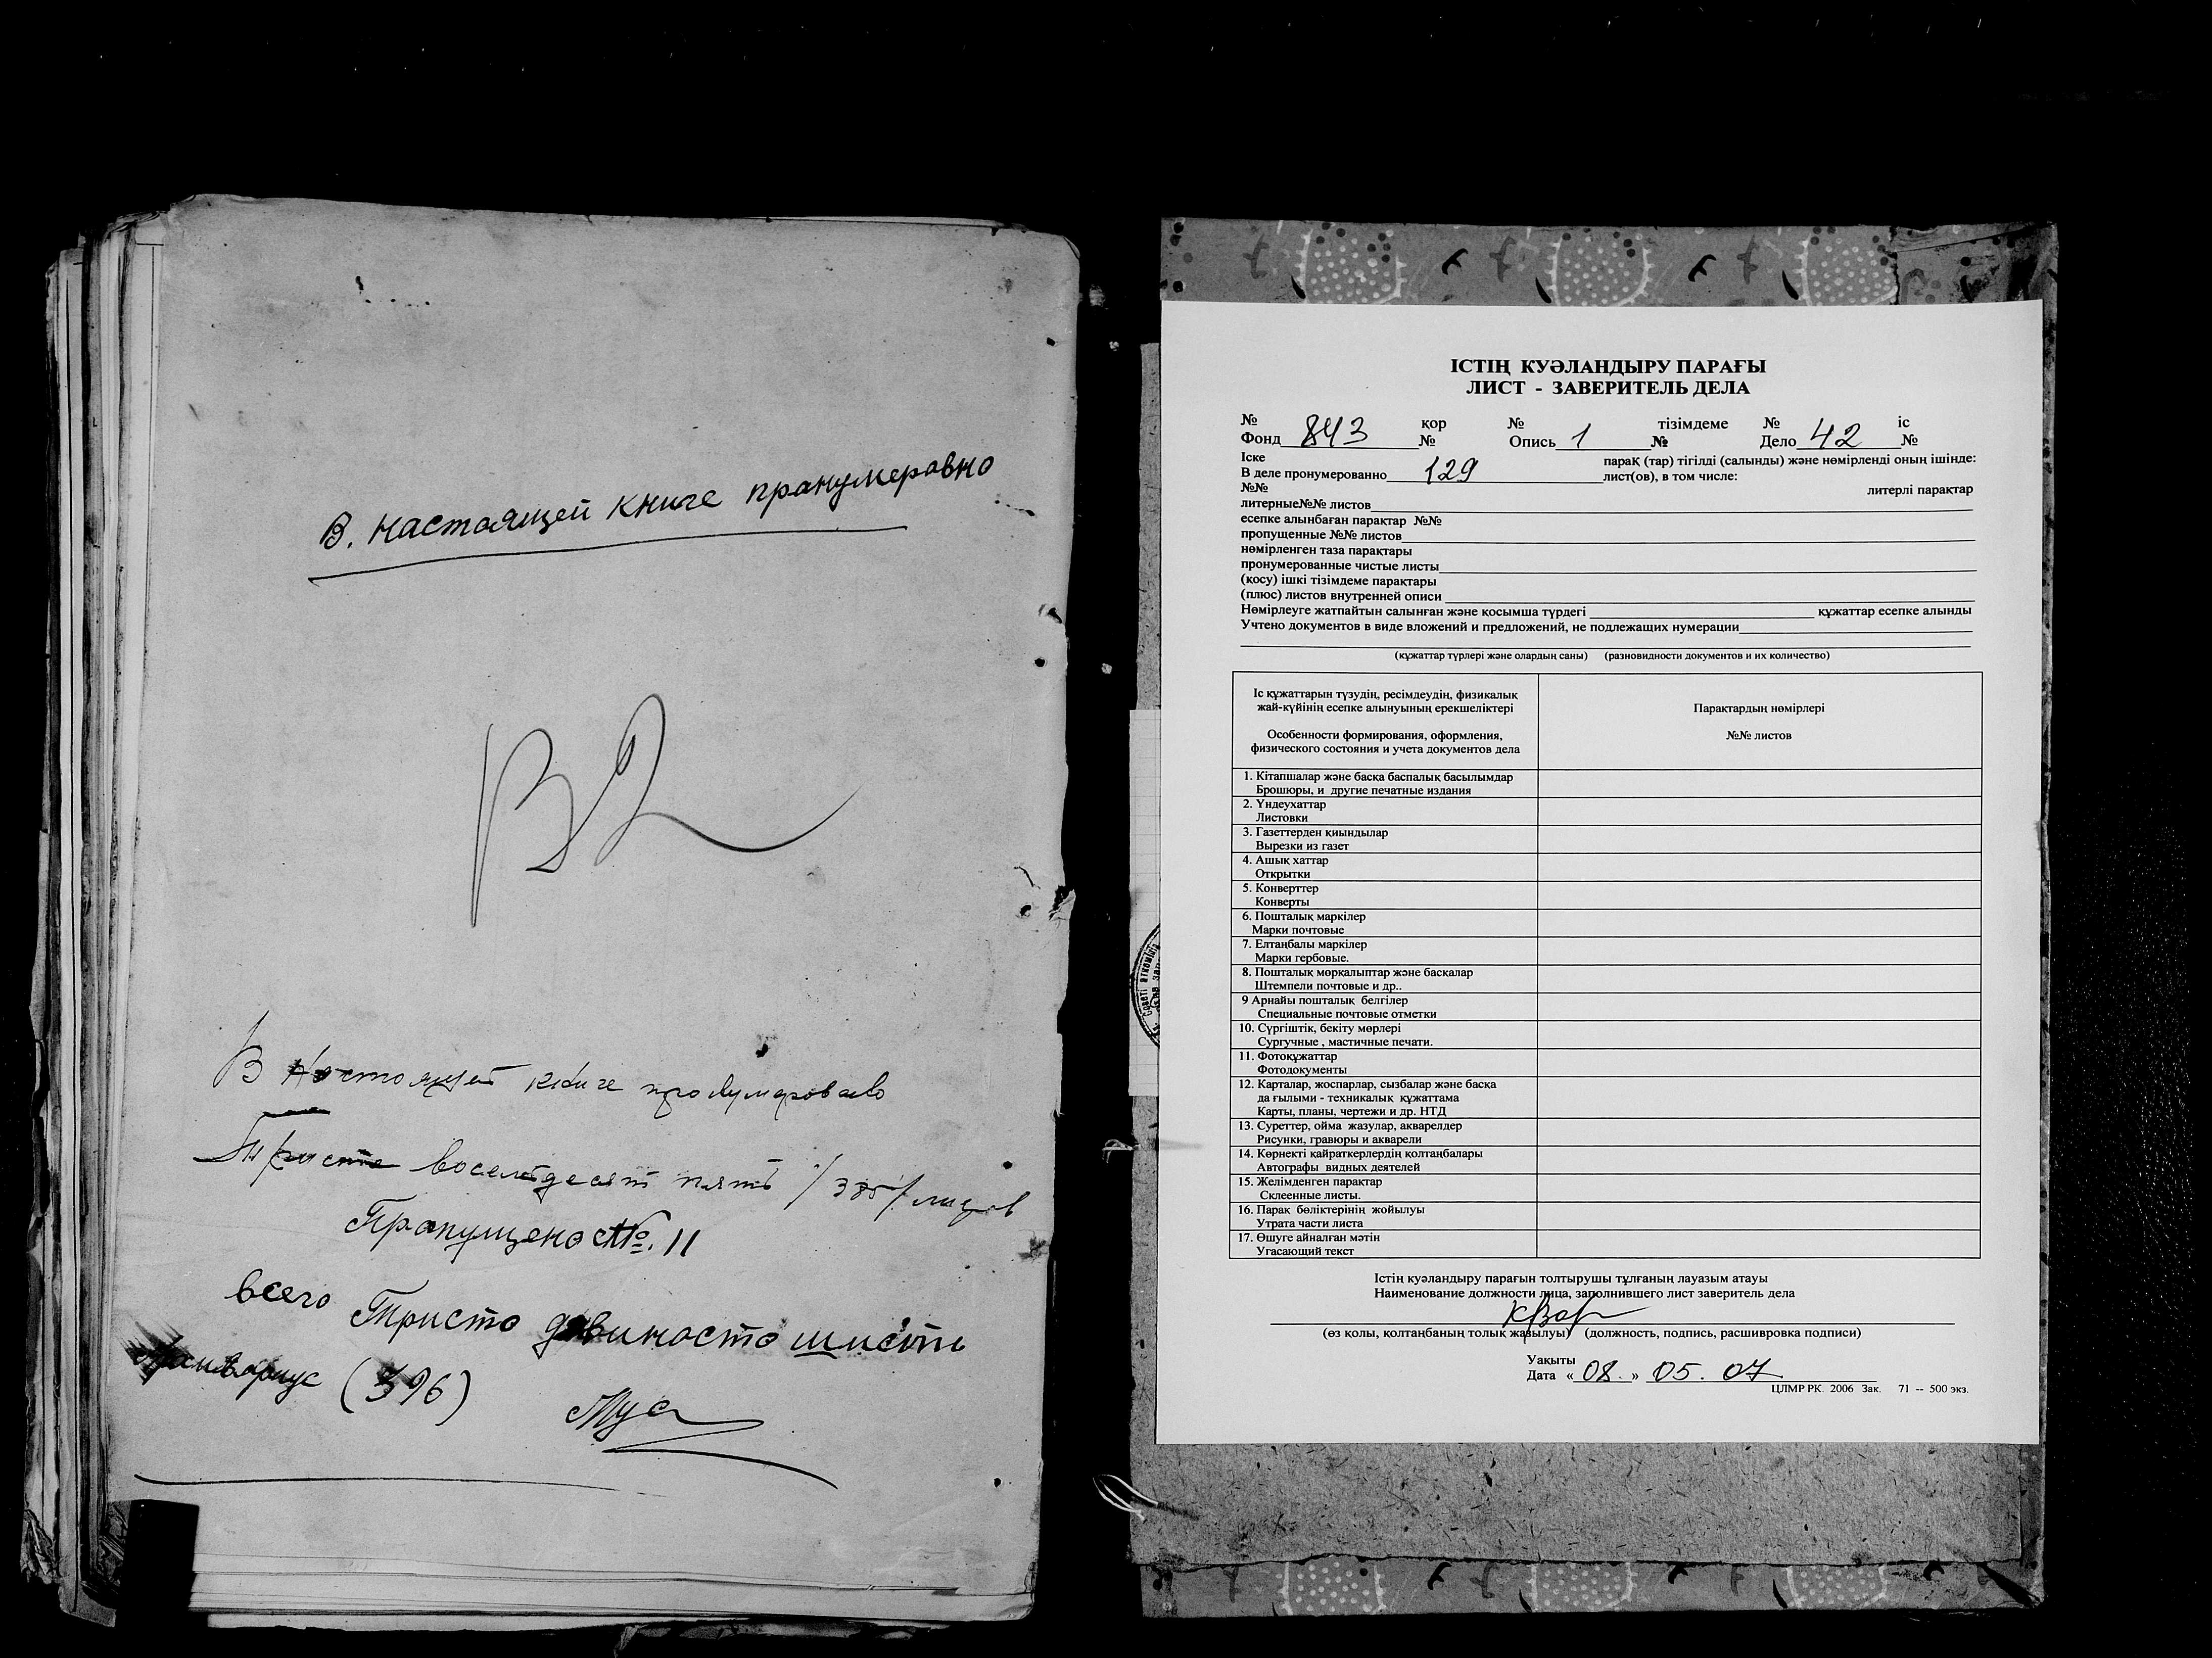 В. настоящей книге пранумеровно
В настоящей книге пронумеровано
Триста восемдесят пять /385/ листов
Прапущено №. 11
всего Тристо двиносто шисть
(396)
ІСТІҢ КУӘЛАНДЫРУ ПАРАҒЫ
ЛИСТ - ЗАВЕРИТЕЛЬ ДЕЛА
№ қор № тізімдеме № іс
Фонд 843 № Опись 1 № Дело 42 №
Іске парақ (тар) тігілді (салынды) және нөмірленді оның ішінде:
В деле пронумерованно 129 лист(ов), в том числе:
№№ литерлі парақтар
литерные№№ листов
есепке алынбаған парақтар №№
пропущенные №№ листов
нөмірленген таза парақтары
пронумерованные чистые листы
(қосу) ішкі тізімдеме парақтары
(плюс) листов внутренней описи
Нөмірлеуге жатпайтын салынған және қосымша түрдегі құжаттар есепке алынды
Учтено документов в виде вложений и предложений, не подлежащих нумерации
(құжаттар түрлері және олардың саны) (разновидности документов и их количество)
Іс құжаттарын түзудің, ресімдеудің, физикалық
жай-күйінің есепке алынуының ерекшеліктері
Особенности формирования, оформления,
физического состояния и учета документов дела
Парақтардың нөмірлері
№№ листов
1. Кітапшалар және басқа баспалық басылымдар
Брошюры, и другие печатные издания
2. Үндеухаттар
Листовки
3. Газеттерден қиындылар
Вырезки из газет
4. Ашық хаттар
Открытки
5. Конверттер
Конверты
6. Пошталық маркілер
Марки почтовые
7. Елтаңбалы маркілер
Марки гербовые.
8. Пошталық мөрқалыптар және басқалар
Штемпели почтовые и др..
9 Арнайы пошталық белгілер
Специальные почтовые отметки
10. Сүргіштік, бекіту мөрлері
Сургучные , мастичные печати.
11. Фотоқұжаттар
Фотодокументы
12. Карталар, жоспарлар, сызбалар және басқа
да ғылыми - техникалық құжаттама
Карты, планы, чертежи и др. НТД
13. Суреттер, ойма жазулар, акварелдер
Рисунки, гравюры и акварели
14. Көрнекті қайраткерлердің қолтаңбалары
Автографы видных деятелей
15. Желімденген парақтар
Склеенные листы.
16. Парақ бөліктерінің жойылуы
Утрата части листа
17. Өшуге айналған мәтін
Угасающий текст
Істің куәландыру парағын толтырушы тұлғаның лауазым атауы
Наименование должности лица, заполнившего лист заверитель дела
(өз қолы, қолтаңбаның толық жазылуы) (должность, подпись, расшивровка подписи)
Уақыты
Дата « 08. » 05. 07
ЦЛМР РК. 2006 Зак. 71 -- 500 экз.